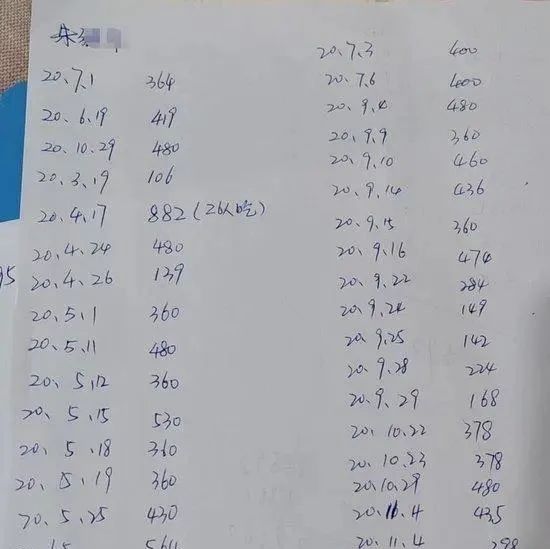 朱
20.7.1 364
20.6.19 419
20.10.29 480
20.3.19 106
20.4.17 882(26人吃)
20.4.24 480
95
20.4.26 139
20.5.1 360
20.5.11 480
20.5.12 360
20.5.15 530
20.5.18 360
20.5.19 360
20.5.25 430
20.7.3 400
20.7.6 400
20.9.4 480
20.9.9 360
20.9.10 460
20.9.14 436
20.9.15 360
20.9.16 474
20.9.22 284
20.9.24 149
20.9.25 142
20.9.28 224
20.9.29 168
20.10.22 378
20.10.23 378
20.10.29 480
20.11.4 435
20.11.4 298